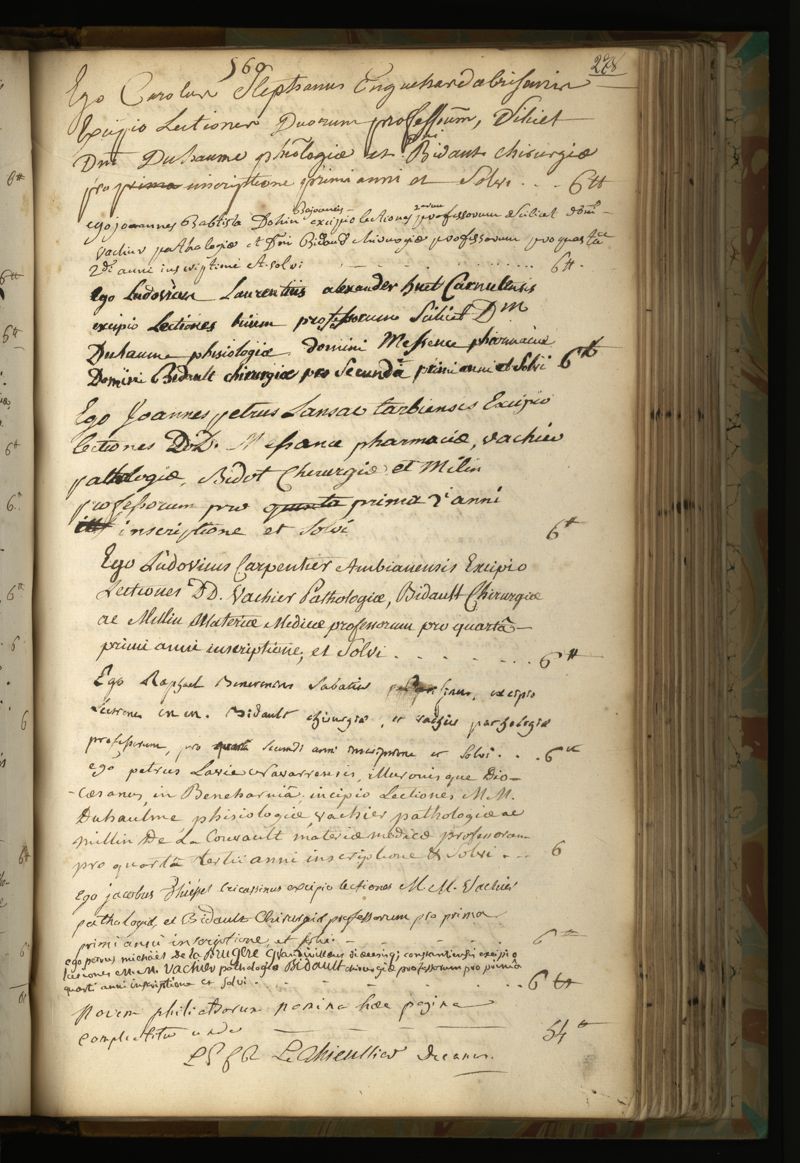 560
278
Ego Carolus Stephanus Enguehard abrisensis
Excipio Lectiones Duorum professorum, Silicet
Dni Duhaume phiologiæ et Dni Bidault chirurgiæ
pro prima inscriptione primi anni et Solvi . . . 6tt
ego joannes Baptista Bajonensis excipio lectiones professorum Silicet dom.
Vachier pathalogiæ et Dni Bidault chirurgiæ professorum pro quarta
2di anni inscriptioni et solvi . . . . . . 6tt.
Ego Ludovicus Laurentius alexander huet Carnutensis
excipio Lectiones trium professorum Silicet Dni
Duhaume phisiologiæ domini Messence pharmaciæ
Domini Bidault chirurgiæ pro Secundâ primi anni et Solvi 6tt
Ego Joannes petrus Lansac tarbiensis Excipio
lectiones D.D. Messance pharmaciæ, vachier
pathologiæ, Bidot Chirurgiæ et Milin
professorum pro quinta prima 2i anni
inscriptione et Solvi 6tt
Ego Ludovicus Carpentier Ambianensis Excipio
Lectiones DD. Vachier Pathologiæ, Bidault Chirurgiæ
ac Millin Materiæ Medicæ professorum pro quartâ
primi anni inscriptione, et Solvi . . . . . . . 6tt
Ego Raphael Sabatier excipio
Lectiones m.m. Bidault chirurgiæ, et vachier pathologiæ
professorum, pro quarta secundi anni inscriptione et Solvi . . . 6tt
ego petrus Lavie Navarrensis, illuronisque Dio-
-cæsanus, in Beneharniâ. incipio Lectiones M.M.
Duhaulme phisiologiæ, vachier pathologiæ ac
millin De La Courault materiæ medicæ professorum
pro quartâ tertii anni inscriptione & Solvi . . . 6
Ego jacobus Thiesset excipio lectiones M.M. Vachier
pathalogiæ et Bidault Chirurgiæ professorum pro prima
primi anni inscriptione, et solvi - - - - 6tt
ego petrus michaël de la Brugere diœcesis constantiensis excipio
lectiones m.m. Vachier pathologiæ Bidault chirurgiæ professorum pro primâ
quarti anni inscriptione et solvi . . . . . . 6tt
Novem philiatrorum nomina hæc pagina
complectitur unde 54tt
LeThieullier decanus.